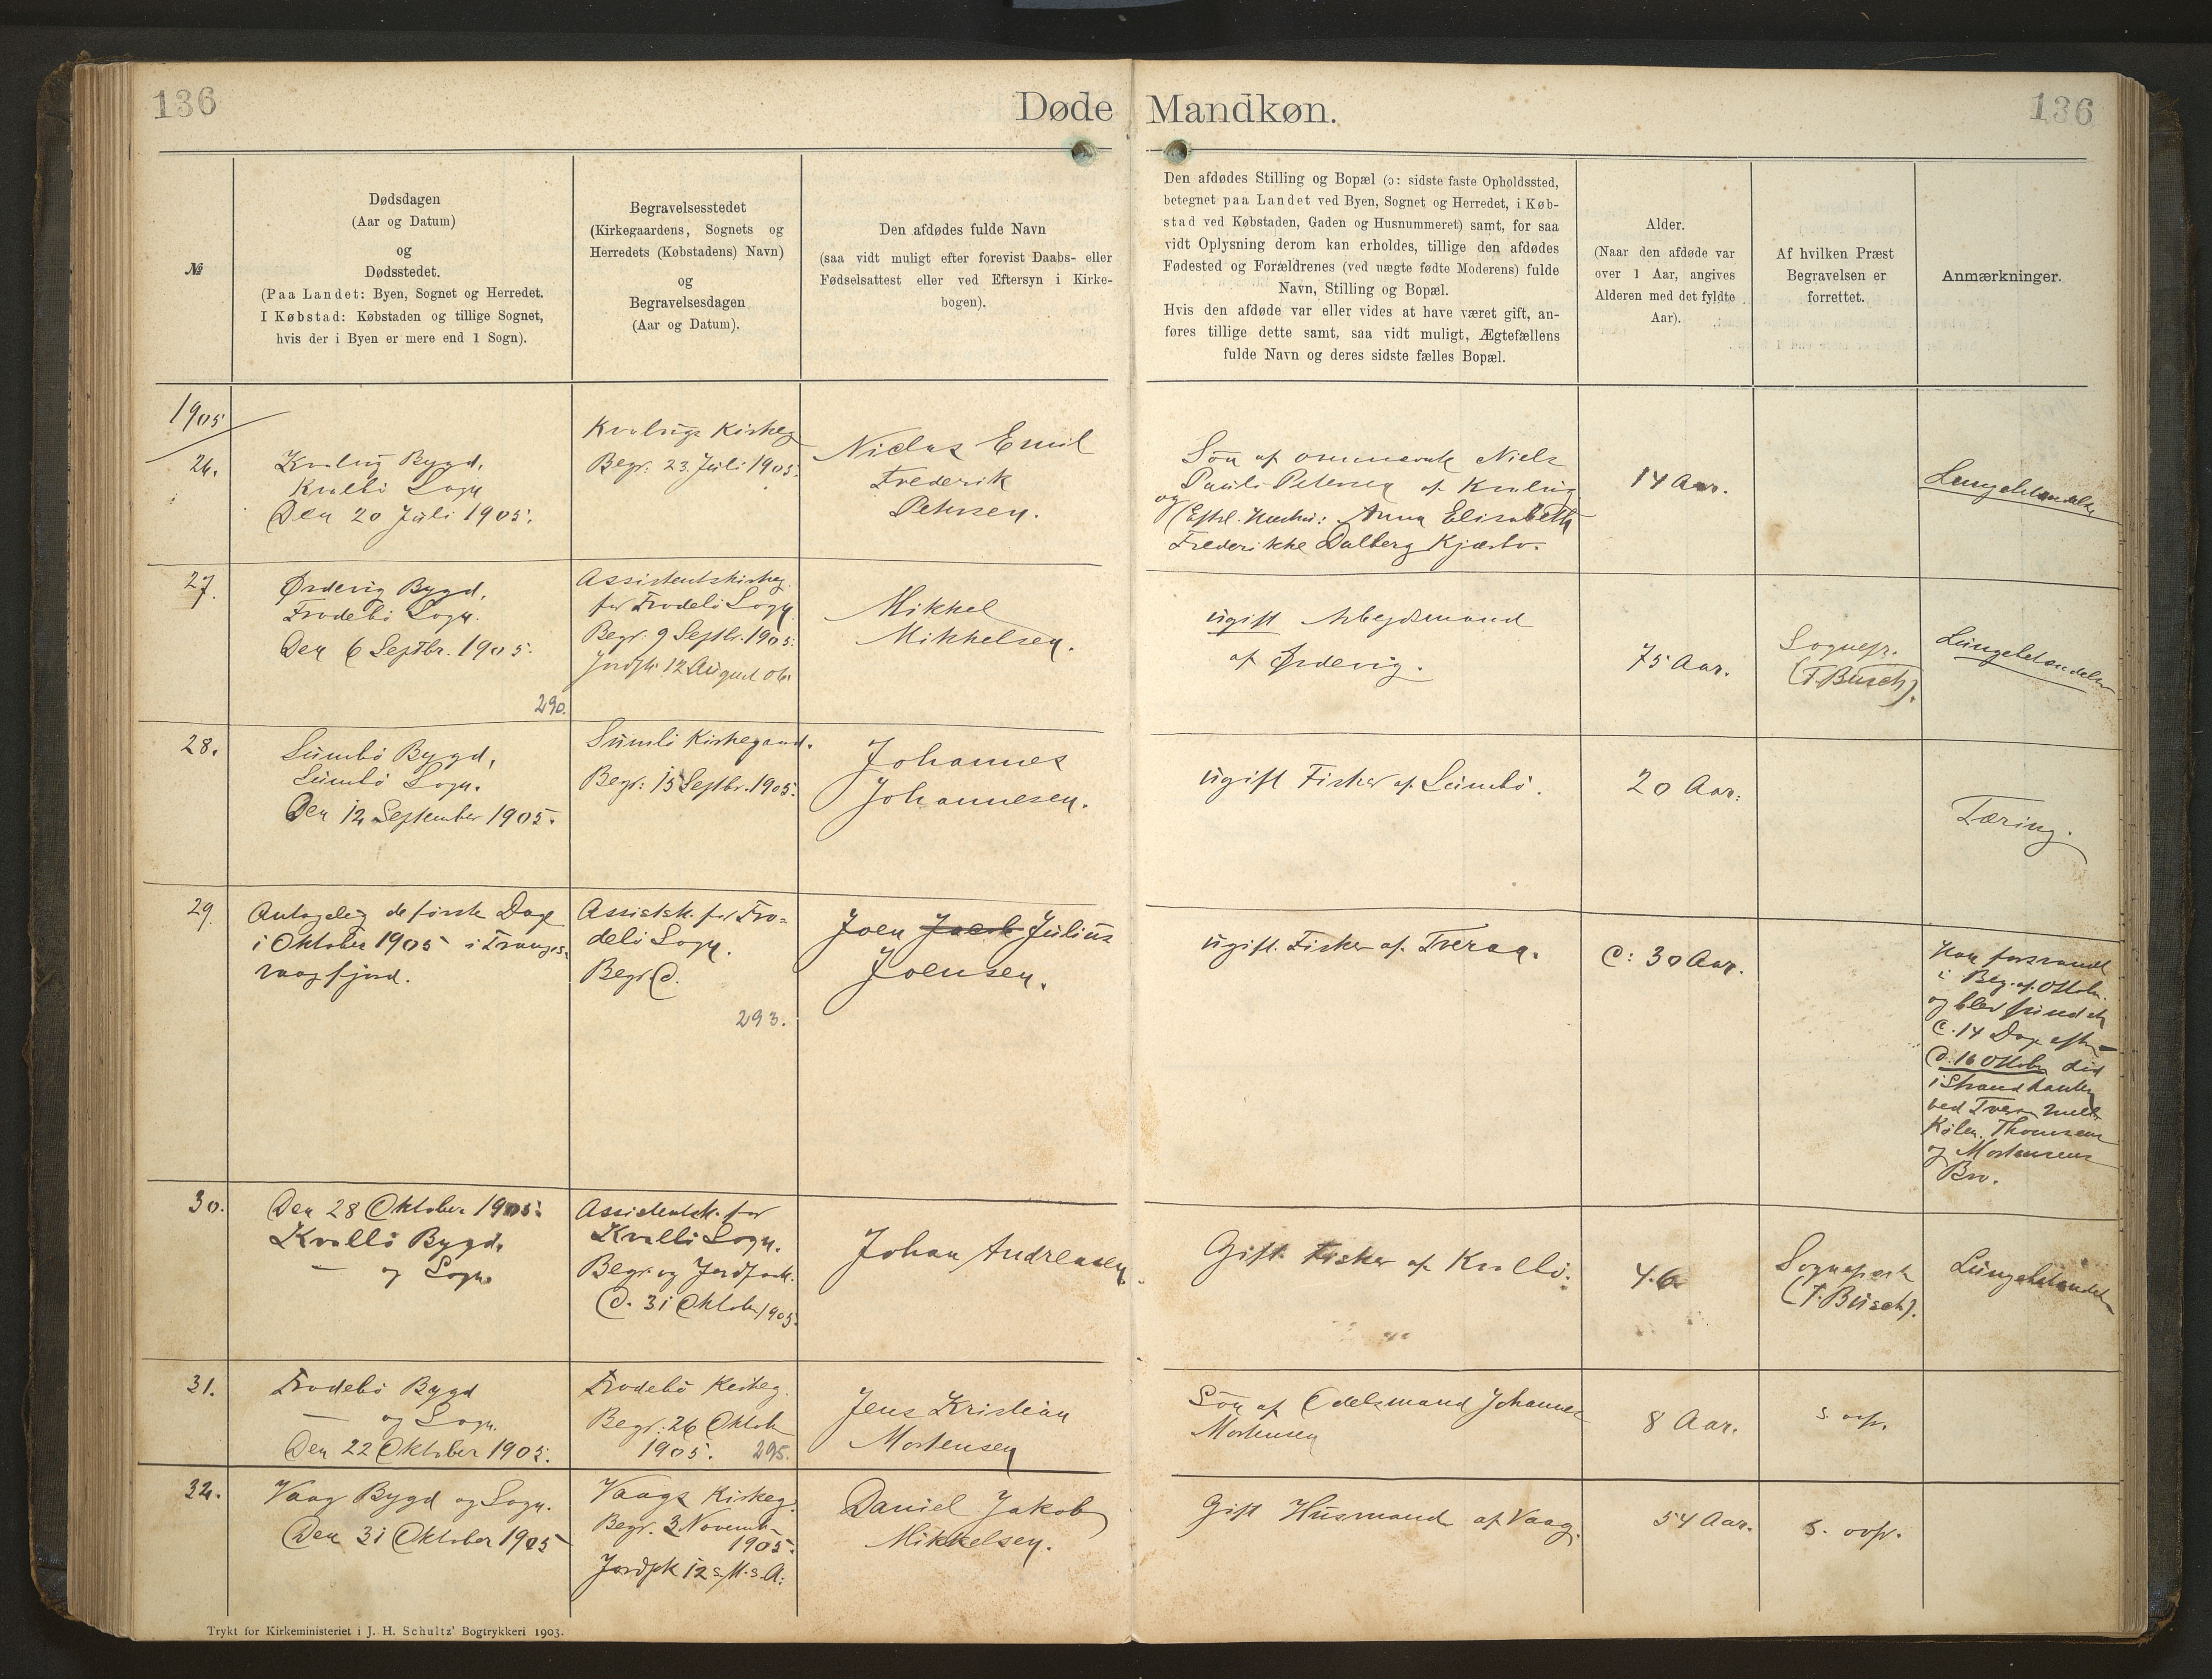 136
Døde Mandkøn.
136
№
Dødsdagen
(Aar og Datum)
og
Dødsstedet.
(Paa Landet: Byen, Sognet og Herredet.
I Købstad: Købstaden og tillige Sognet,
hvis der i Byen er mere end 1 Sogn).
Begravelsesstedet
(Kirkegaardens, Sognets og
Herredets (Købstadens) Navn)
og
Begravelsesdagen
(Aar og Datum).
Den afdødes fulde Navn
(saa vidt muligt efter forevist Daabs- eller
Fødselsattest eller ved Eftersyn i Kirke-
bogen).
Den afdødes Stilling og Bopæl (ɔ: sidste faste Opholdssted,
betegnet paa Landet ved Byen, Sognet og Herredet, i Køb-
stad ved Købstaden, Gaden og Husnummeret) samt, for saa
vidt Oplysning derom kan erholdes, tillige den afdødes
Fødested og Forældrenes (ved uægte fødte Moderens) fulde
Navn, Stilling og Bopæl.
Hvis den afdøde var eller vides at have været gift, an-
føres tillige dette samt, saa vidt muligt, Ægtefællens
fulde Navn og deres sidste fælles Bopæl.
Alder.
(Naar den afdøde var
over 1 Aar, angives
Alderen med det fyldte
Aar).
Af hvilken Præst
Begravelsen er
forrettet.
Anmærkninger.
1905
26.
Bygd,
Sogn
Den 20 Juli 1905.
Kirkeg
Begr: 23. Juli 1905.
Niclas Emil
Frederik
Petersen.
Søn af Niels
Pauli Petersen af
og Anna Elisabeth
Frederikke Dalberg Kjærbo.
14 Aar.
Lungebetændelse
27.
Ørdevig Bygd,
Frodebø Sogn.
Den 6 Septbr. 1905.
290.
Assistentskirkeg.
for Frodebø Sogn
Begr. 9 Septbr. 1905.
Jordfk 12 August 06.
Mikkel
Mikkelsen.
ugift Arbejdsmand
af Ørdevig.
75 Aar.
Sognepr.
(F. Busch).
Lungebetændelse
28.
Sumbø Bygd,
Sumbø Sogn.
Den 12 September 1905.
Sumbø Kirkegaard.
Begr: 15 Septbr. 1905.
Johannes
Johannesen.
ugift Fisker af Sumbø.
20 Aar.
Tæring.
29.
Antagelig de første Dage
i Oktober 1905 i Trangis-
vaagfjord.
Assistsk. for Fro-
debø Sogn.
Begr. d.
293.
Joen Jacob Julius
Joensen.
ugift. Fisker af Tveraa.
C: 30 Aar.
Han forsvandt
i Beg. af Oktobr.
og blev fundet
C. 14 Dage efter
d. 16 Oktober død
i Strandkanten
ved Tveraa mell.
Købm. Thomsens
og Mortensens
Bro.
30.
Den 28 Oktober 1905.
Kvalbø Bygd.
— og Sogn
Assistentsk. for
Kvalbø Sogn.
Begr. og Jordfæst.
d. 31 Oktober 1905.
Johan Andreasen.
Gift. Fisker af Kvalbø.
46
Sognepræst
(F. Busch).
Lungebetændelse
31.
Frodebø Bygd
— og Sogn.
Den 22 Oktober 1905.
Frodebø Kirkeg.
Begr. 26 Oktob
1905. 295.
Jens Kristian
Mortensen
Søn af Odelsmand Johannes
Mortensen
8 Aar.
s. ovfr.
32.
Vaag Bygd og Sogn.
Den 31 Oktober 1905
Vaags Kirkeg.
Begr. 3 Novemb.
1905.
Jordfk 12 s. M. s. A.
Daniel Jakob
Mikkelsen.
Gift Husmand af Vaag.
54 Aar.
s. ovfr.
Trykt for Kirkeministeriet i J. H. Schultz' Bogtrykkeri 1903.